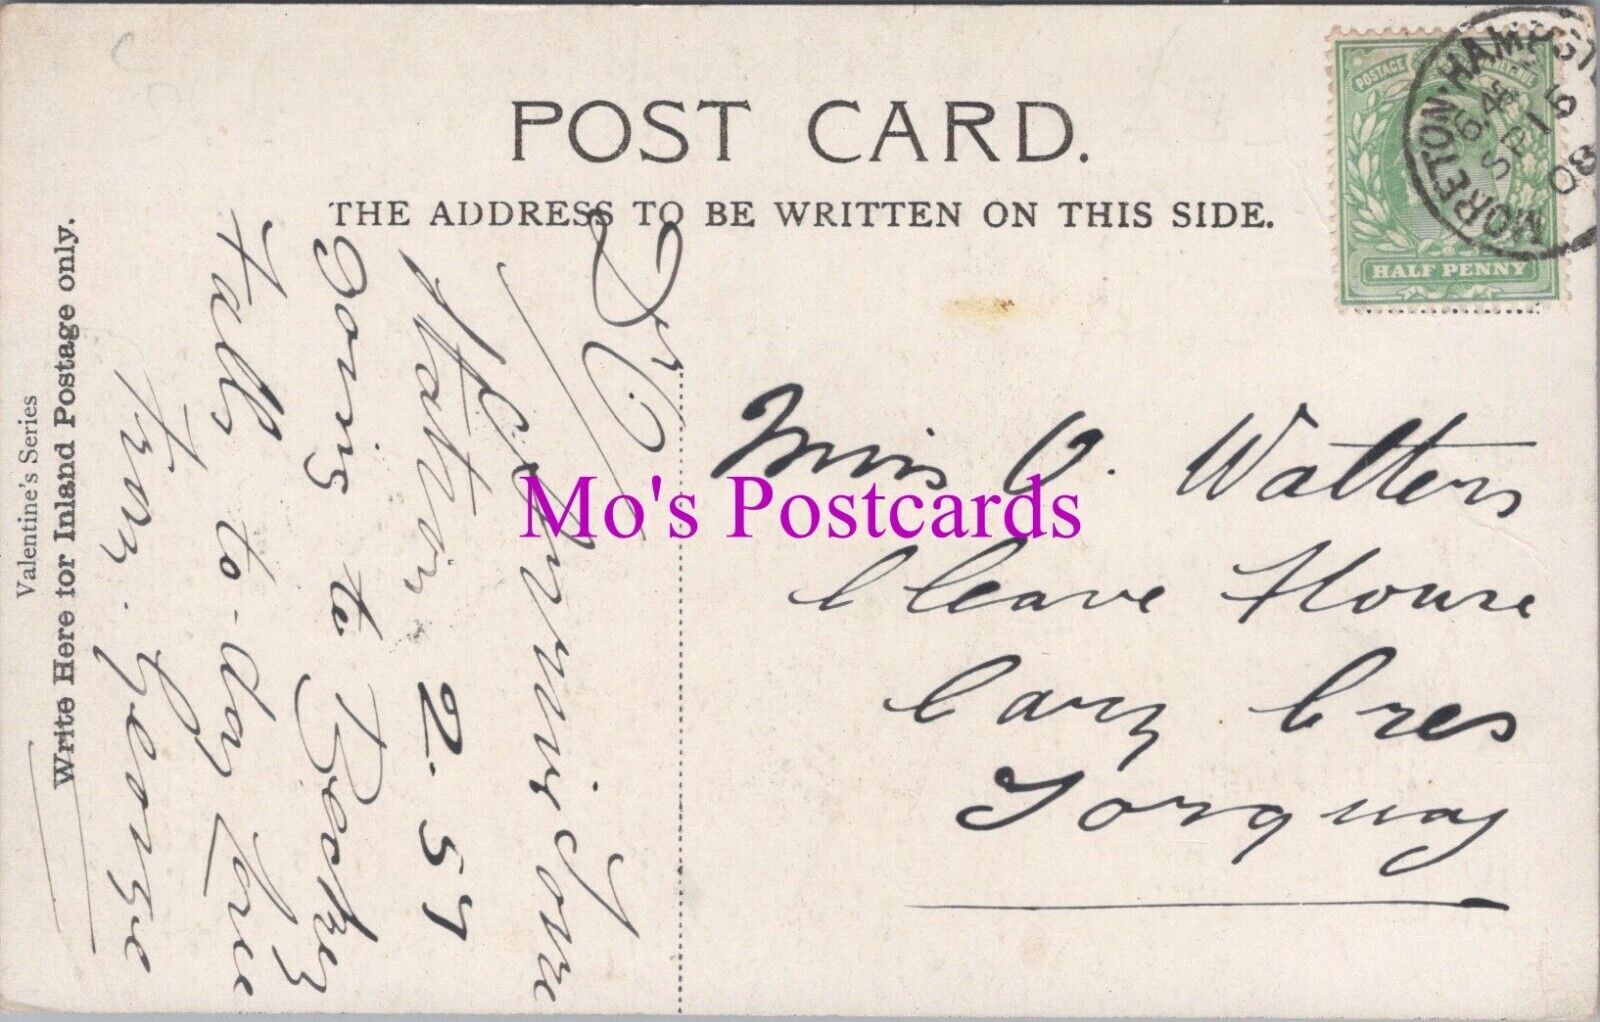 POST CARD.
THE ADDRESS TO BE WRITTEN ON THIS SIDE.
POSTAGE
HALF PENNY
MORETON-HAMPSTE
SP 19
08
Valentine's Series
Write Here for Inland Postage only.
Dr O.
2.57
going to Becky
Falls to-day Love
from George
Miss O. Watters
Cleave House
Cary Cres
Torquay
Mo's Postcards